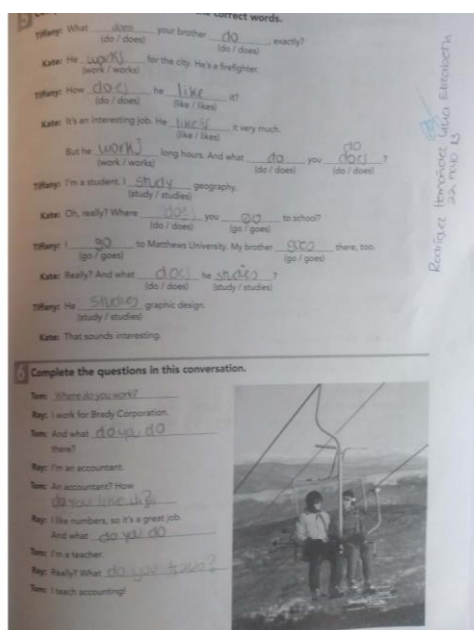 5
correct words.
Tiffany: What does your brother do, exactly?
(do / does) (do / does)
Kate: He works for the city. He's a firefighter.
(work / works)
Tiffany: How does he like it?
(do / does) (like / likes)
Kate: It's an interesting job. He likes it very much.
(like / likes)
do
But he works long hours. And what do you does ?
(work / works) (do / does) (do / does)
Tiffany: I'm a student. I study geography.
(study / studies)
Kate: Oh, really? Where does you go to school?
(do / does) (go / goes)
Tiffany: I go to Matthews University. My brother goes there, too.
(go / goes) (go / goes)
Kate: Really? And what does he studies ?
(do / does) (study / studies)
Tiffany: He studies graphic design.
(study / studies)
Kate: That sounds interesting.
6 Complete the questions in this conversation.
Tom: Where do you work?
Ray: I work for Brady Corporation.
Tom: And what do you do
there?
Ray: I'm an accountant.
Tom: An accountant? How
do you like
Ray: I like numbers, so it's a great job.
And what do you do
Tom: I'm a teacher.
Ray: Really? What do you
Tom: I teach accounting!
Rodríguez Hernández Elizabeth
22 mayo